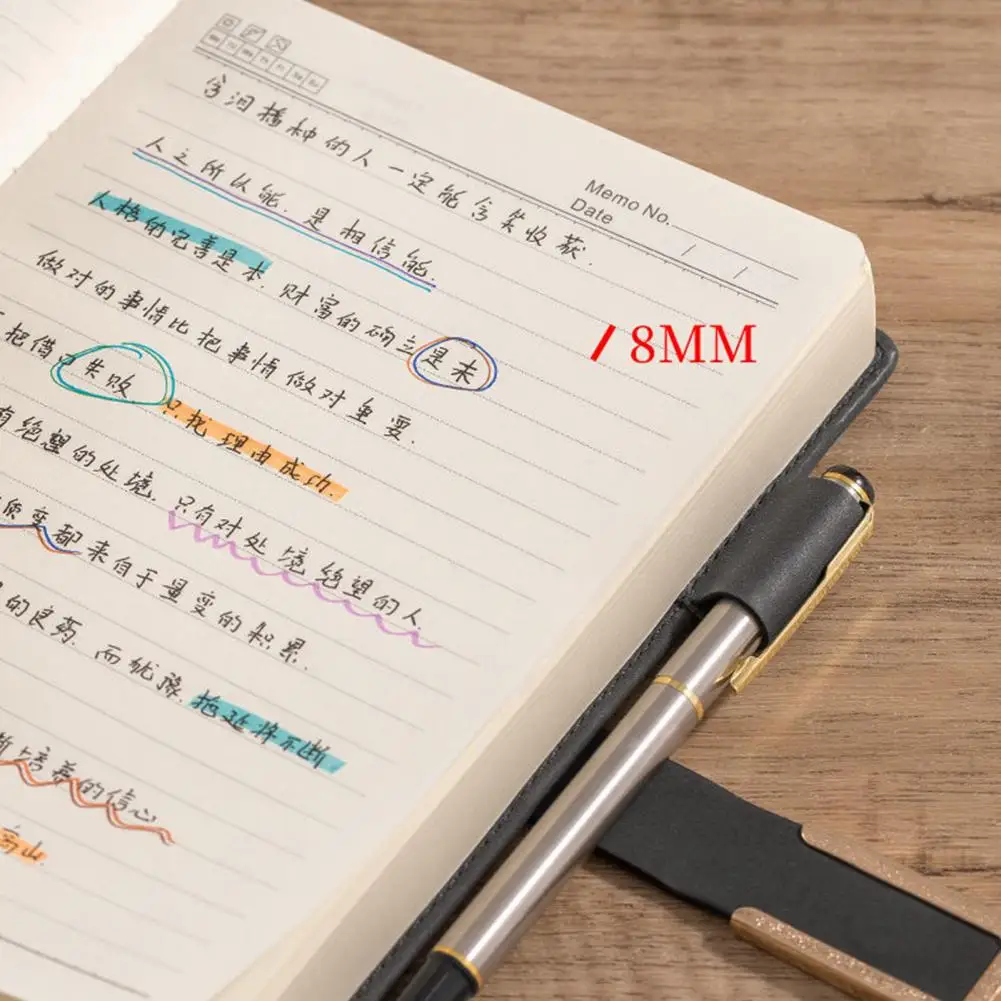 Mo Tu We Th Fr Sa Su
Memo No.
Date / /
含泪播种的人一定能含笑收获.
人之所以能.是相信能.
人格的完善是本.财富的确立是末
做对的事情比把事情做对重要.
把借口失败只找理由成功.
有绝望的处境.只有对处境绝望的人.
质变都来自于量变的积累.
的良药.而犹豫.拖延将不断
断培养的信心
高山.
8MM